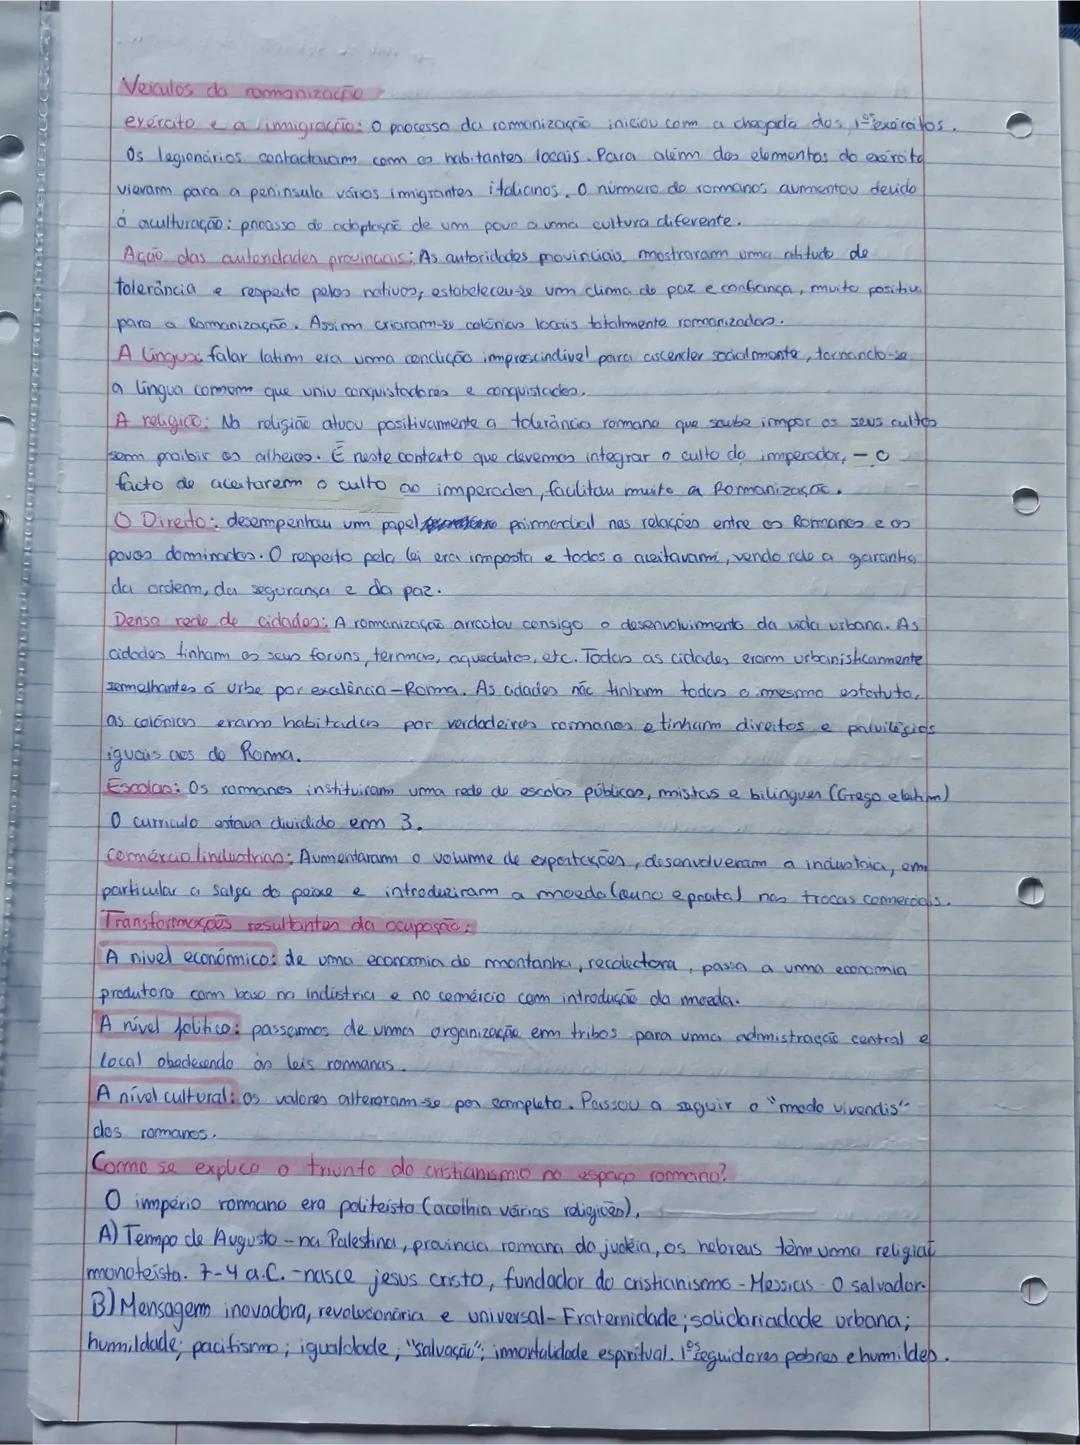 Veiculos da romanização
exército e a imigração: O processo da romanização iniciou com a chegada dos 1ºs exércitos.
Os legionários contactavam com os habitantes locais. Para além dos elementos do exército
vieram para a peninsula vários imigrantes italianos. O número de romanos aumentou devido
á aculturação: processo de adaptação de um povo a uma cultura diferente.
Ação das autoridades provinciais: As autoridades provinciais, mostraram uma atitude de
tolerância e respeito pelos nativos, estabeleceu-se um clima de paz e confiança, muito positivo
para a Romanização. Assim criaram-se colónias locais totalmente romanizadas.
A língua: falar latim era uma condição imprescindivel para ascender socialmente, tornando-se
a língua comum que uniu conquistadores e conquistados.
A religião: Na religião atuou positivamente a tolerância romana que soube impor os seus cultos
sem proibir os alheios. É neste contexto que devemos integrar o culto do imperador, - o
facto de aceitarem o culto ao imperador, facilitou muito a Romanização.
O Direito: desempenhou um papel primordial nas relações entre os Romanos e os
povos dominados. O respeito pela lei era imposta e todos o aceitavam, vendo nele a garantia
da ordem, da segurança e da paz.
Densa rede de cidades: A romanização arrastou consigo o desenvolvimento da vida urbana. As
cidades tinham os seus foruns, termas, aquedutos, etc. Todas as cidades eram urbanisticamente
semelhantes á urbe por excelência - Roma. As cidades não tinham todas o mesmo estatuto,
as colónias eram habitadas por verdadeiros romanos e tinham direitos e privilégios
iguais aos de Roma.
Escolas: Os romanos instituiram uma rede de escolas públicas, mistas e bilingues (Grego e latim)
O curriculo estava dividido em 3.
comércio/industrias: Aumentaram o volume de exportações, desenvolveram a industria, em
particular a salga do peixe e introduziram a moeda (ouro e prata) nas trocas comerciais.
Transformações resultantes da ocupação:
A nivel económico: de uma economia de montanha, recolectora, passa a uma economia
produtora com base na indústria e no comércio com introdução da moeda.
A nível politico: passamos de uma organização em tribos para uma admistração central e
local obedecendo ás leis romanas.
A nível cultural: os valores alteraram-se por completo. Passou a seguir o "modo vivendis"
dos romanos.
Como se explica o triunfo do cristianismo no espaço romano?
O império romano era politeísta (acolhia várias religiões).
A) Tempo de Augusto - na Palestina, provincia romana da judéia, os hebreus têm uma religião
monoteísta. 7-4 a.C. - nasce jesus cristo, fundador do cristianismo - Messias - O salvador.
B) Mensagem inovadora, revolucionária e universal - Fraternidade; solidariadade urbana;
humildade; pacifismo; igualdade; "salvação"; imortalidade espiritual. 1ºs seguidores pobres e humildes.